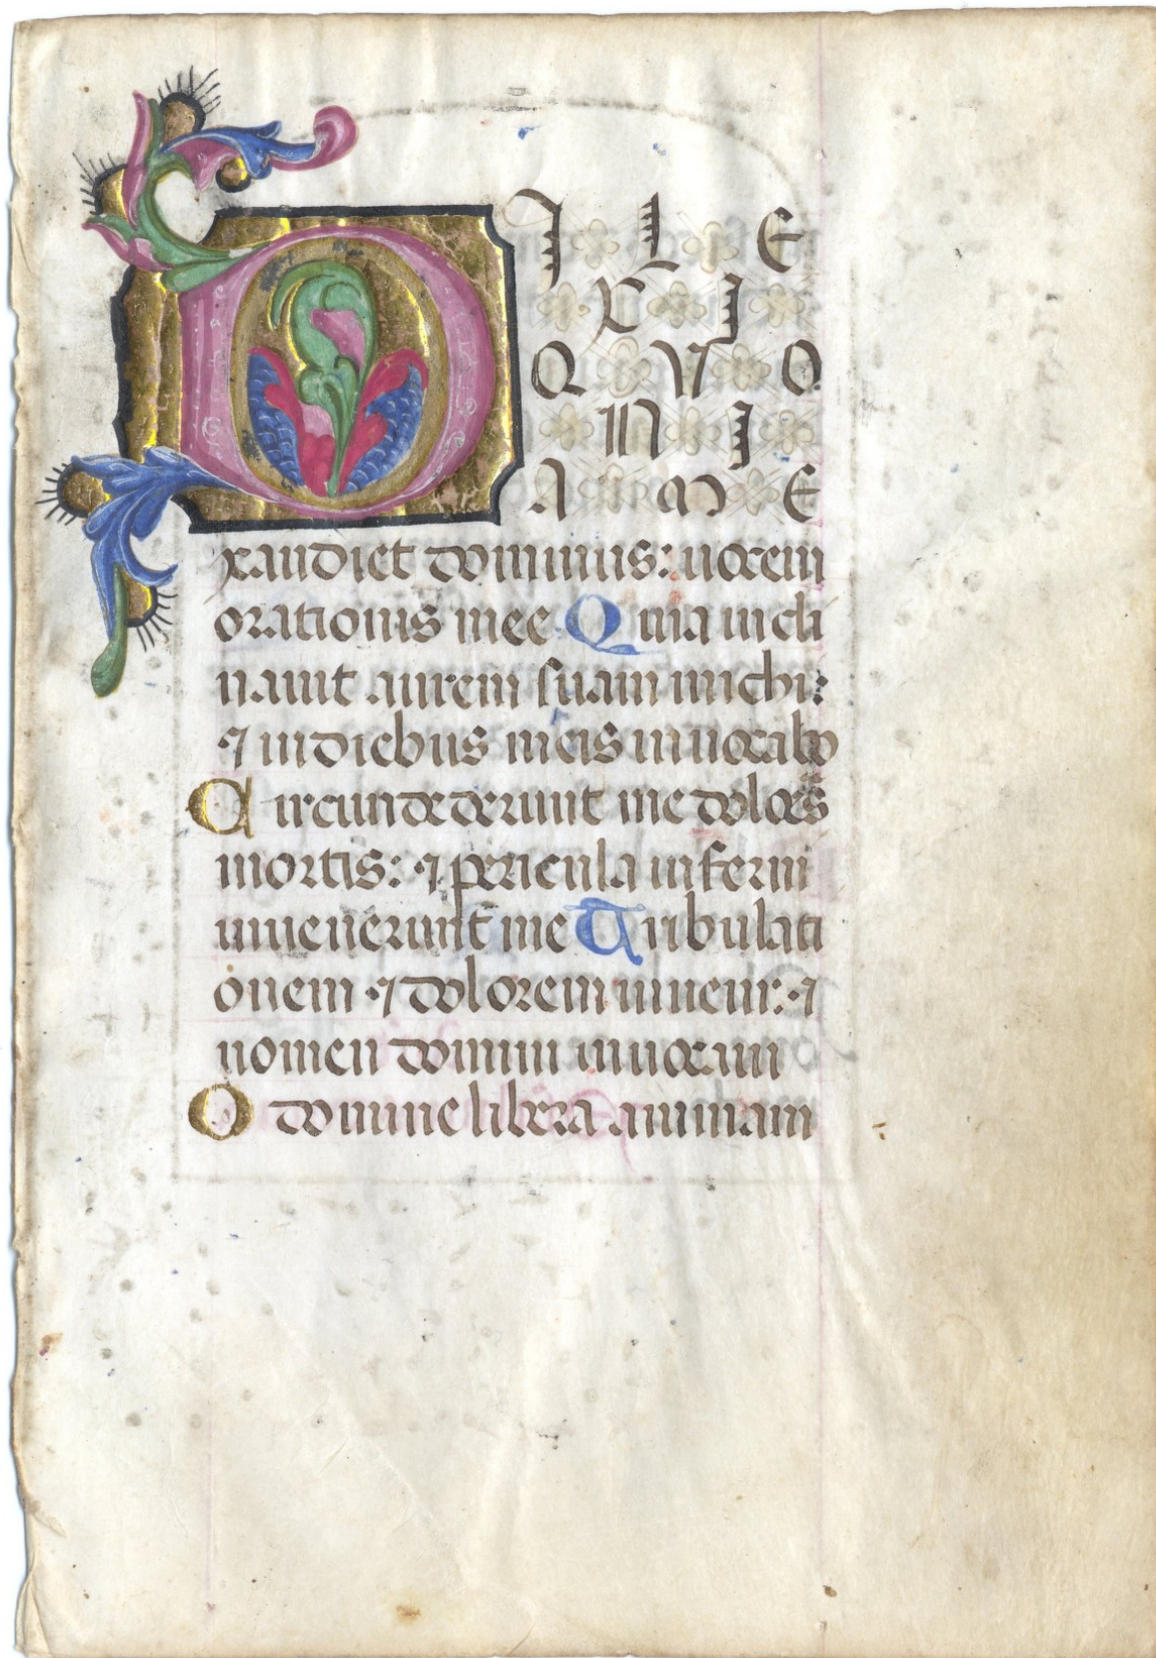 DILE
XI
QVO
NI
AM E
xaudiet dominus: uocem
orationis mee Quia incli
nauit aurem suam michi:
⁊ in diebus meis inuocabo
Circundederunt me dolores
mortis: ⁊ pericula inferni
inuenerunt me Tribulati
onem ⁊ dolorem inueni: ⁊
nomen domini inuocaui
O domine libera animam